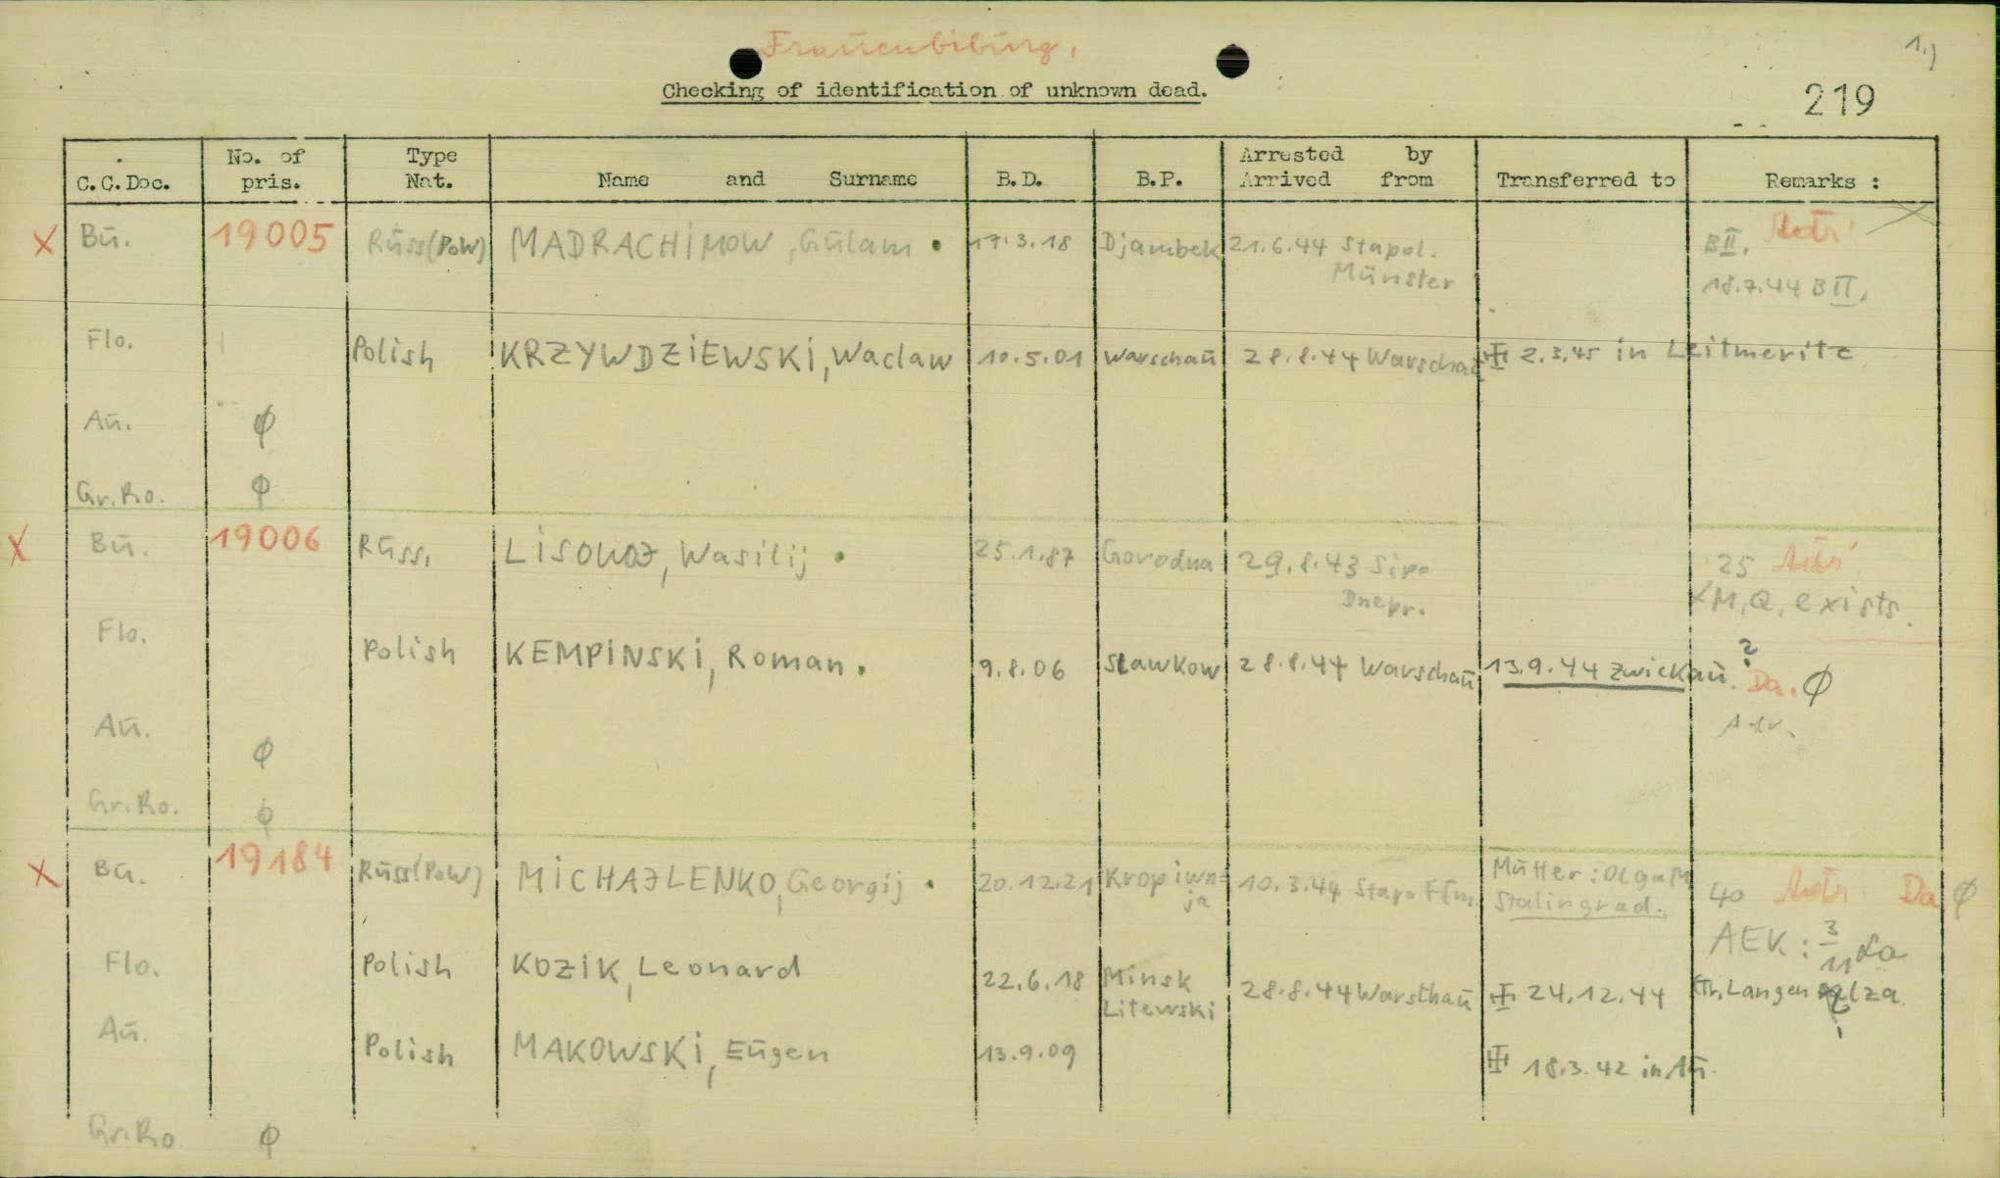 Frauenbiburg,
1.)
Checking of identification of unknown dead.
219
C.C.Doc. No. of pris. Type Nat. Name and Surname B.D. B.P. Arrested by Arrived from Transferred to Remarks :
X Bū. 19005 Rūss(PoW) MADRACHiMOW, Gūlam • 17.3.18 Djambek 21.6.44 Stapol. BII.
Mūnster 18.7.44 BII,
Flo. Polish KRZYWDZiEWSKi, Waclaw 10.5.01 Warschaū 28.8.44 Warschaū 2.3.45 in Leitmeritz
Aū. ϕ
Gr.Ro. ϕ
X Bū. 19006 Rūss. LiSOWOJ, Wasilij • 25.1.87 Gorodna 29.8.43 Sipo 25
Dnepr. M,Q, exists.
Flo. Polish KEMPiNSKi, Roman. 9.8.06 Slawkow 28.8.44 Warschaū 13.9.44 Zwickaū. ? Da. ϕ
Aū. ϕ
Gr.Ro. ϕ
X Bū. 19184 Rūss(PoW) MiCHAJLENKO, Georgij • 20.12.21 Kropiwn=ja 10.3.44 Stapo Mūtter: Olga M 40 Da ϕ
Stalingrad.
AEK:
Flo. Polish KOZiK, Leonard 22.6.18 Minsk Litewski 28.8.44 Warschaū 24.12.44
Aū. Polish MAKOWSKi, Eūgen 13.9.09 18.3.42 in Aū.
Gr.Ro ϕ